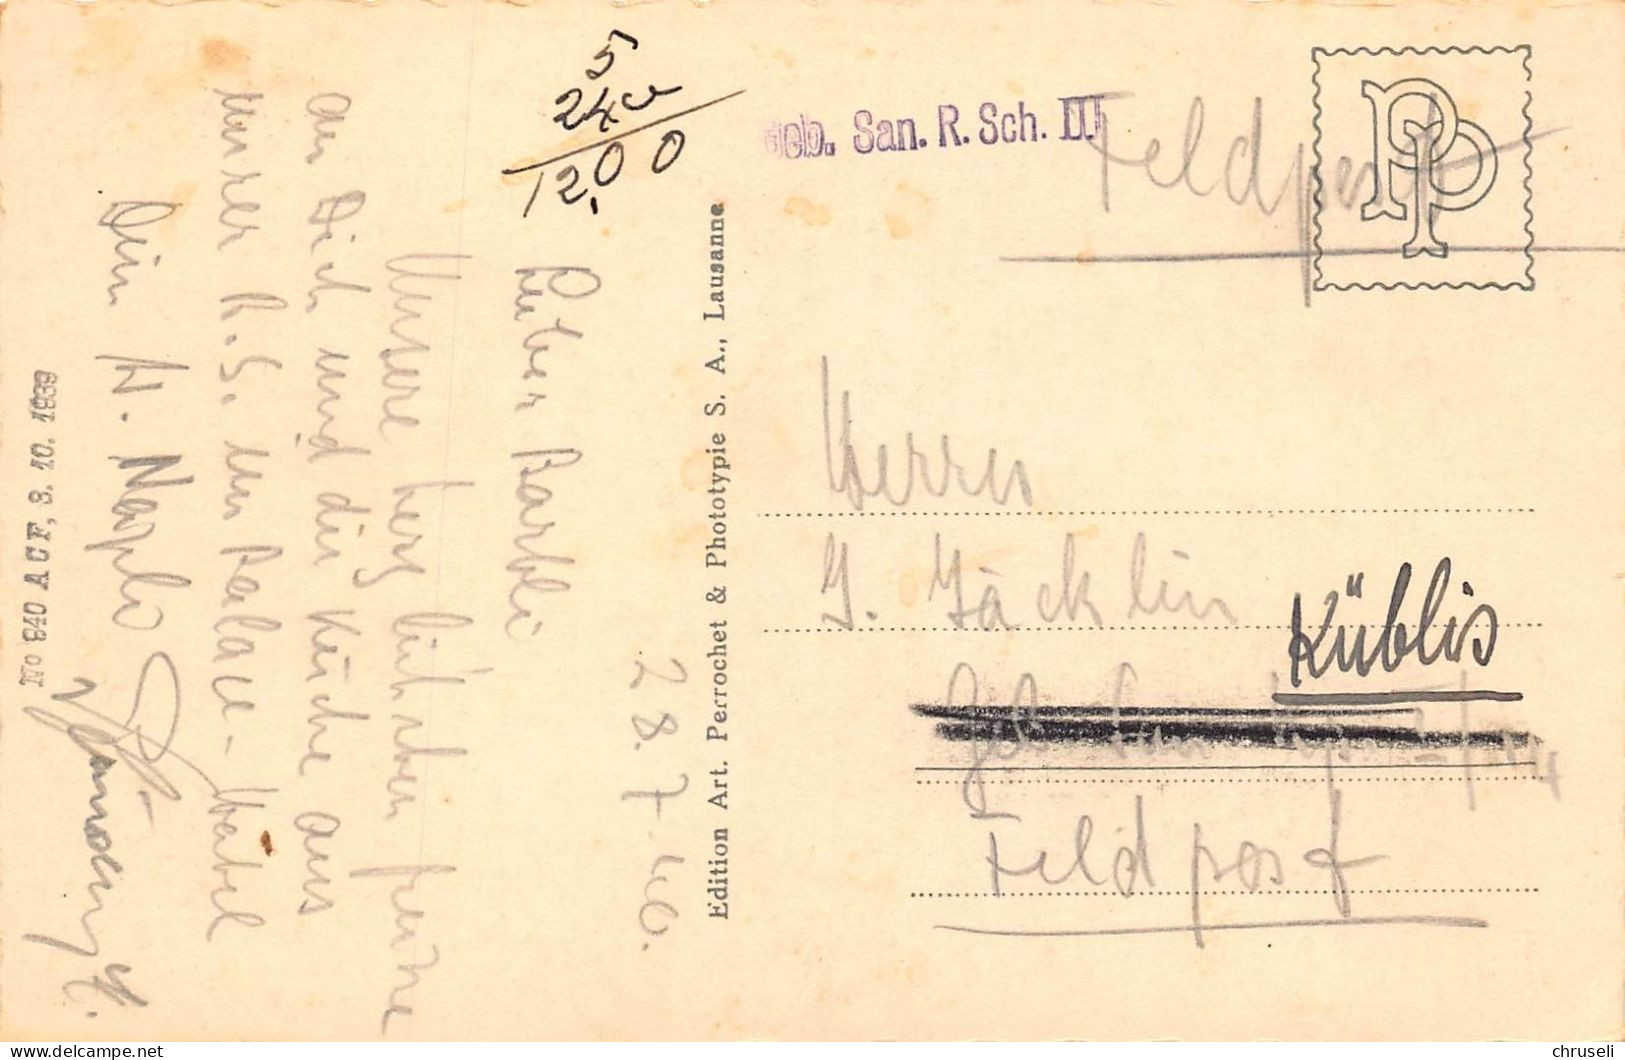 5
24cu
12.00
Geb. San. R. Sch. III
Feldpost
PP
28.7.40.
Lieber Barbli
Unsere herzlichsten
an Dich und die Küche aus
R.S. im Palace-Hotel
Dein H.
No 840 ACF, 3. 10. 1939
Edition Art. Perrochet & Phototypie S. A., Lausanne
Herrn
J. Jäcklin
Küblis
Feldpost
chruseli
delcampe.net